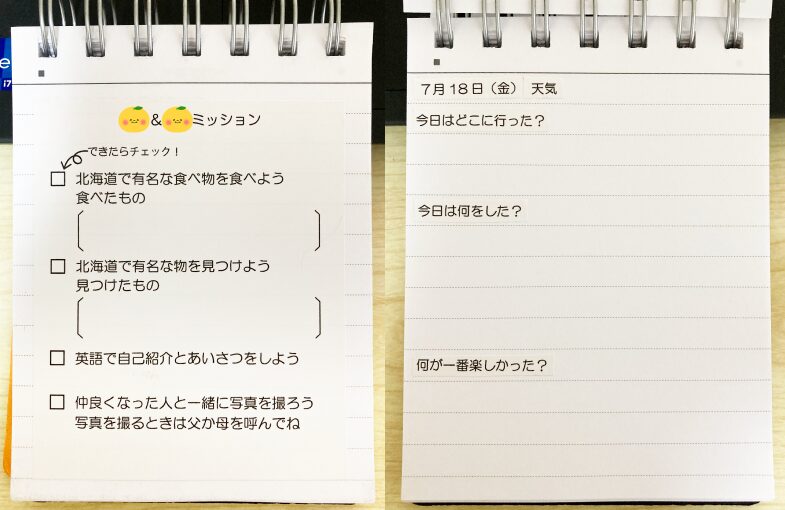 e
i7
&ミッション
できたらチェック！
北海道で有名な食べ物を食べよう
食べたもの
北海道で有名な物を見つけよう
見つけたもの
英語で自己紹介とあいさつをしよう
仲良くなった人と一緒に写真を撮ろう
写真を撮るときは父か母を呼んでね
7月18日（金） 天気
今日はどこに行った？
今日は何をした？
何が一番楽しかった？